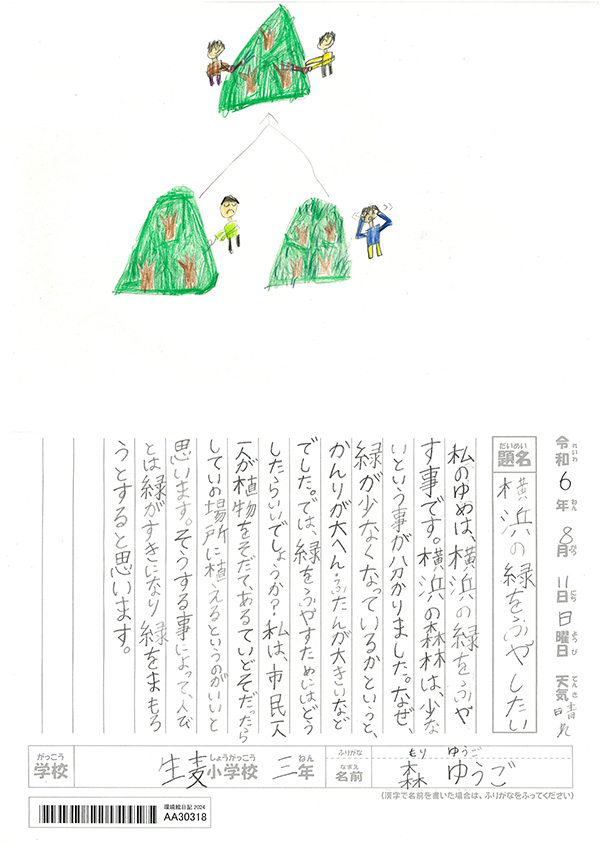 令和6年8月11日日曜日 天気晴れ
れいわ ねん がつ にち ようび てんき
だいめい
題名
横浜の緑をふやしたい
私のゆめは、横浜の緑をふや
す事です。横浜の森林は、少な
いという事が分かりました。なぜ、
緑が少なくなっているかというと、
かんりが大へん・ふたんが大きいなど
でした。では、緑をふやすためにはどう
したらいいでしょうか?私は、市民一人
一人が植物をそだて、あるていどそだったら
していの場所に植えるというのがいいと
思います。そうする事によって、人び
とは緑がすきになり緑をまもろ
うとすると思います。
がっこう しょうがっこう ねん
学校 生麦小学校 三年
ふりがな もり ゆうご
なまえ
名前 森 ゆうご
(漢字で名前を書いた場合は、ふりがなをふってください)
環境絵日記2024
AA30318